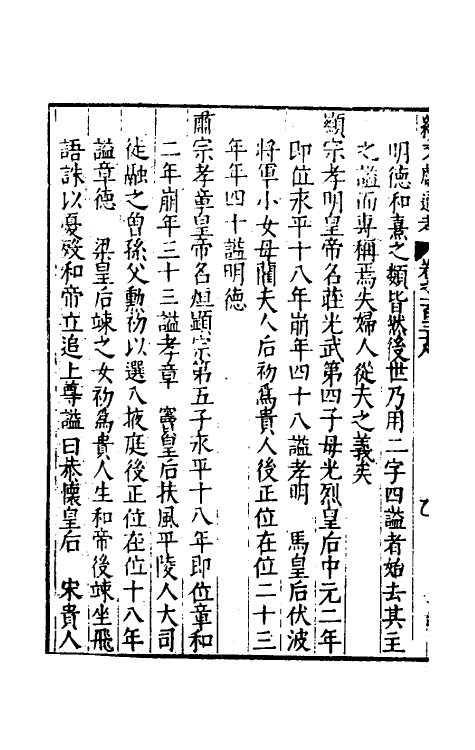 續文獻通考 卷之一百三十八
明德和熹之類皆然後世乃用二字四謚者始去其主
之謚而專稱焉失婦人從夫之義矣
顯宗孝明皇帝名莊光武第四子母光烈皇后中元二年
即位永平十八年崩年四十八謚孝明 馬皇后伏波
將軍小女母藺夫人后初爲貴人後正位在位二十三
年年四十謚明德
肅宗孝章皇帝名炟顯宗第五子永平十八年即位章和
二年崩年三十三謚孝章 竇皇后扶風平陵人大司
徒融之曾孫父勳初以選入掖庭後正位在位十八年
謚章德 梁皇后竦之女初爲貴人生和帝後竦坐飛
語誅以憂歿和帝立追上尊謚曰恭懷皇后 宋貴人